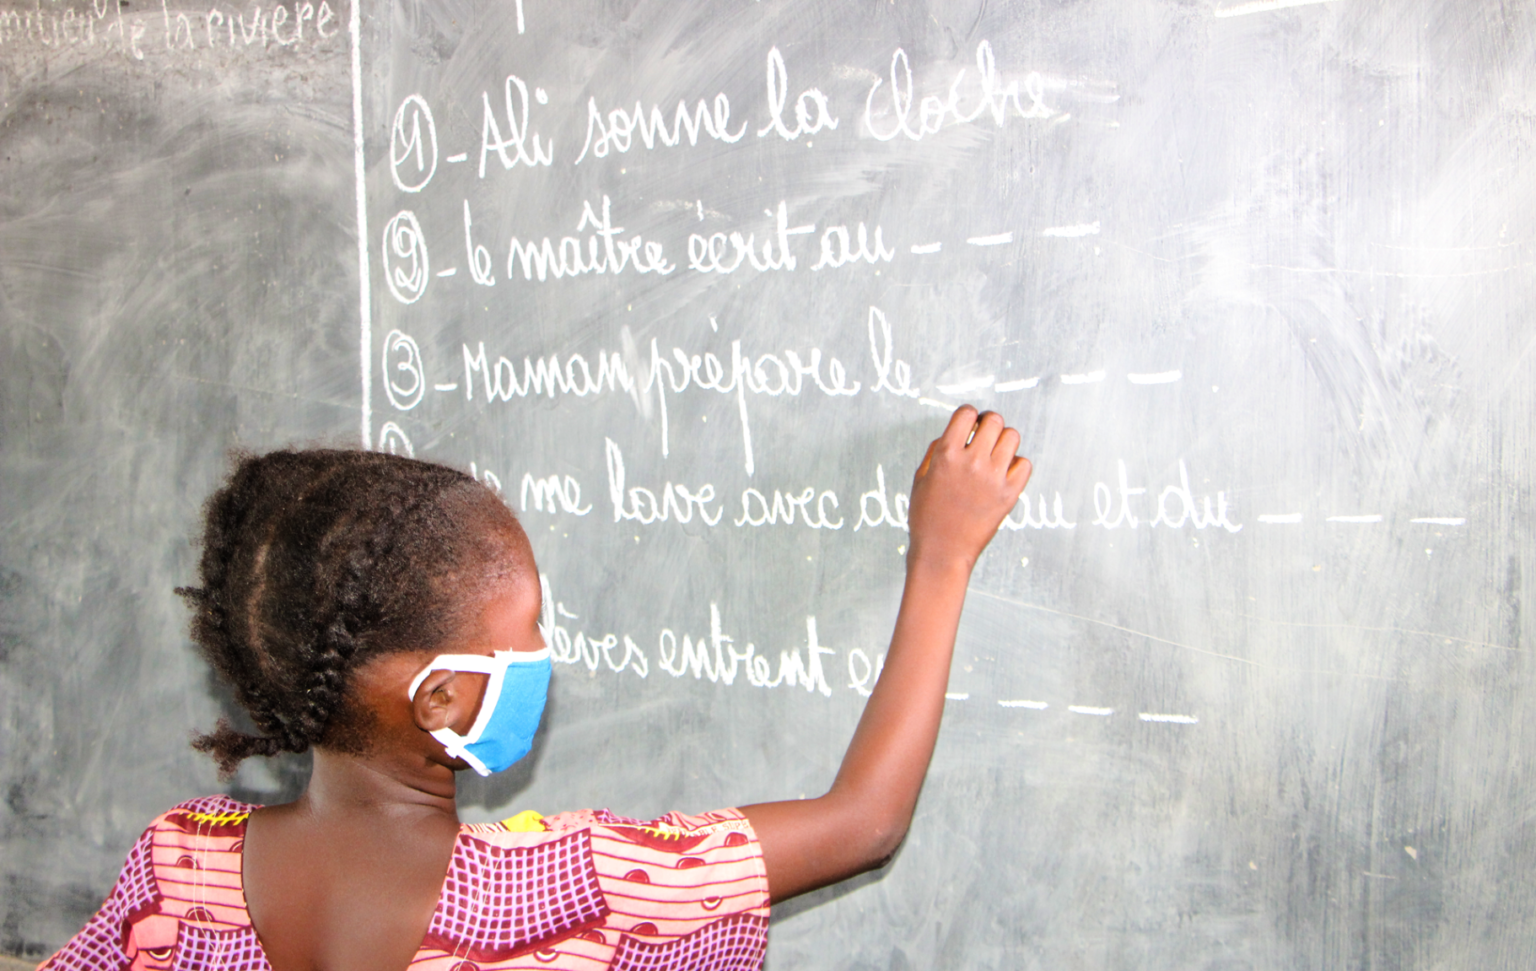 de la rivière
① - Ali sonne la cloche
② - le maître écrit au _ _ _
③ - Maman prépare le _ _ _ _
me lave avec de au et du _ _ _
lèves entrent en _ _ _ _